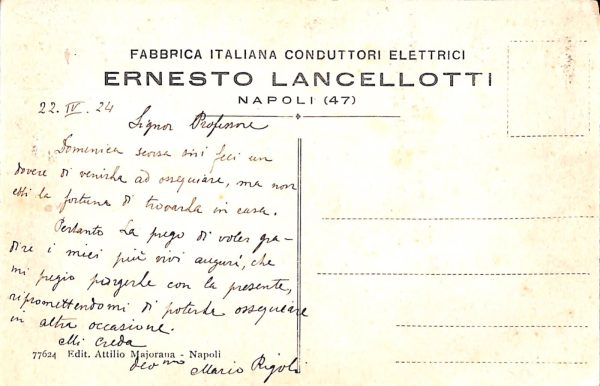 FABBRICA ITALIANA CONDUTTORI ELETTRICI
ERNESTO LANCELLOTTI
NAPOLI (47)
22. IV. 24
Signor Professore
Domenica scorsa mi feci un
dovere di venirla ad ossequiare, ma non
ebbi la fortuna di trovarla in casa.
Pertanto La prego di voler gra-
dire i miei più vivi auguri, che
mi pregio porgerle con la presente,
ripromettendomi di poterla ossequiare
in altra occasione.
Mi creda
77624 Edit. Attilio Majorana - Napoli
dev mo Mario